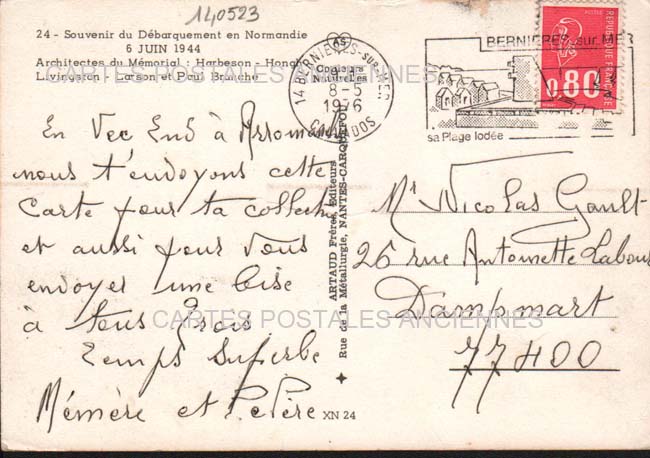 140523
24 - Souvenir du Débarquement en Normandie
6 JUIN 1944
Architectes du Mémorial : Harbeson - Hough
Livingston : Larson et Paul Branche
CARTES POSTALES ANCIENNES
14 BERNIERES-sur-MER
8-5
1976
CALVADOS
BERNIERES sur MER
sa Plage Iodée
0,80
POSTES
REPUBLIQUE FRANÇAISE
En Vec End à Arromanch
nous t'envoyons cette
Carte pour ta collecti
et aussi pour Vous
envoyer une bise
à tous trois
temps superbe
Mémère et Pépère
ARTAUD Frères, Editeurs
Rue de la Métallurgie, NANTES-CARQUEFOU
XN 24
Mr Nicolas Gault
26 rue Antoinette Labour
Dampmart
77400
CARTES POSTALES ANCIENNES